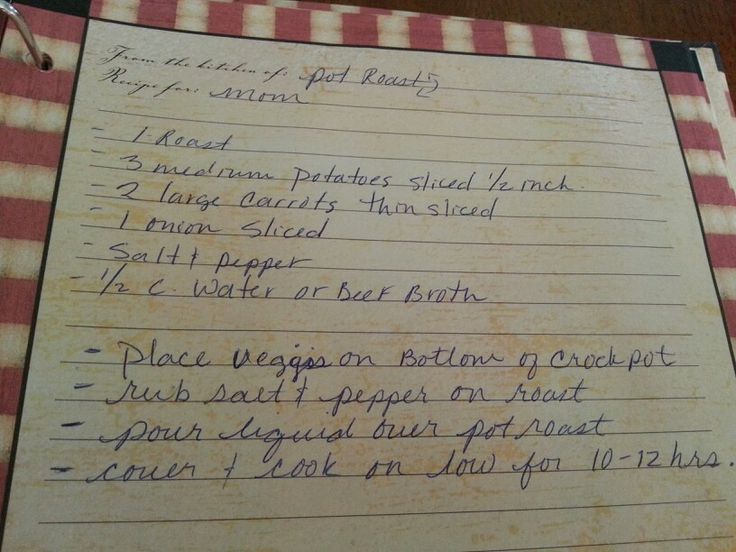 From the kitchen of: Pot Roast
Recipe for: Mom
- 1 Roast
- 3 medium potatoes sliced 1/2 inch.
- 2 large carrots thin sliced
- 1 onion sliced
- Salt & pepper
- 1/2 C. Water or Beef Broth
- Place veggis on Bottom of Crockpot
- rub salt & pepper on roast
- pour liquid over pot roast
- cover & cook on low for 10-12 hrs.